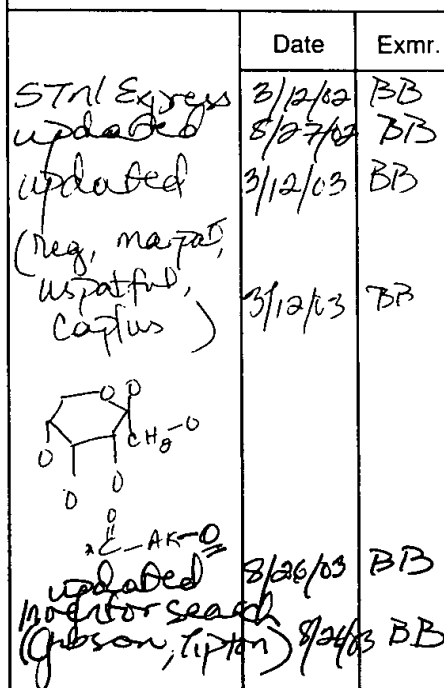 Date Exmr.
STN/ Express 3/12/02 BB
updated 8/27/02 BB
updated 3/12/03 BB
(reg, marpat,
uspatful,
caplus) 3/12/03 BB
O O
CH2-O
O
O
O
O
C-AK-O
updated 8/26/03 BB
inventor search
(Gibson, Tipton) 8/26/03 BB